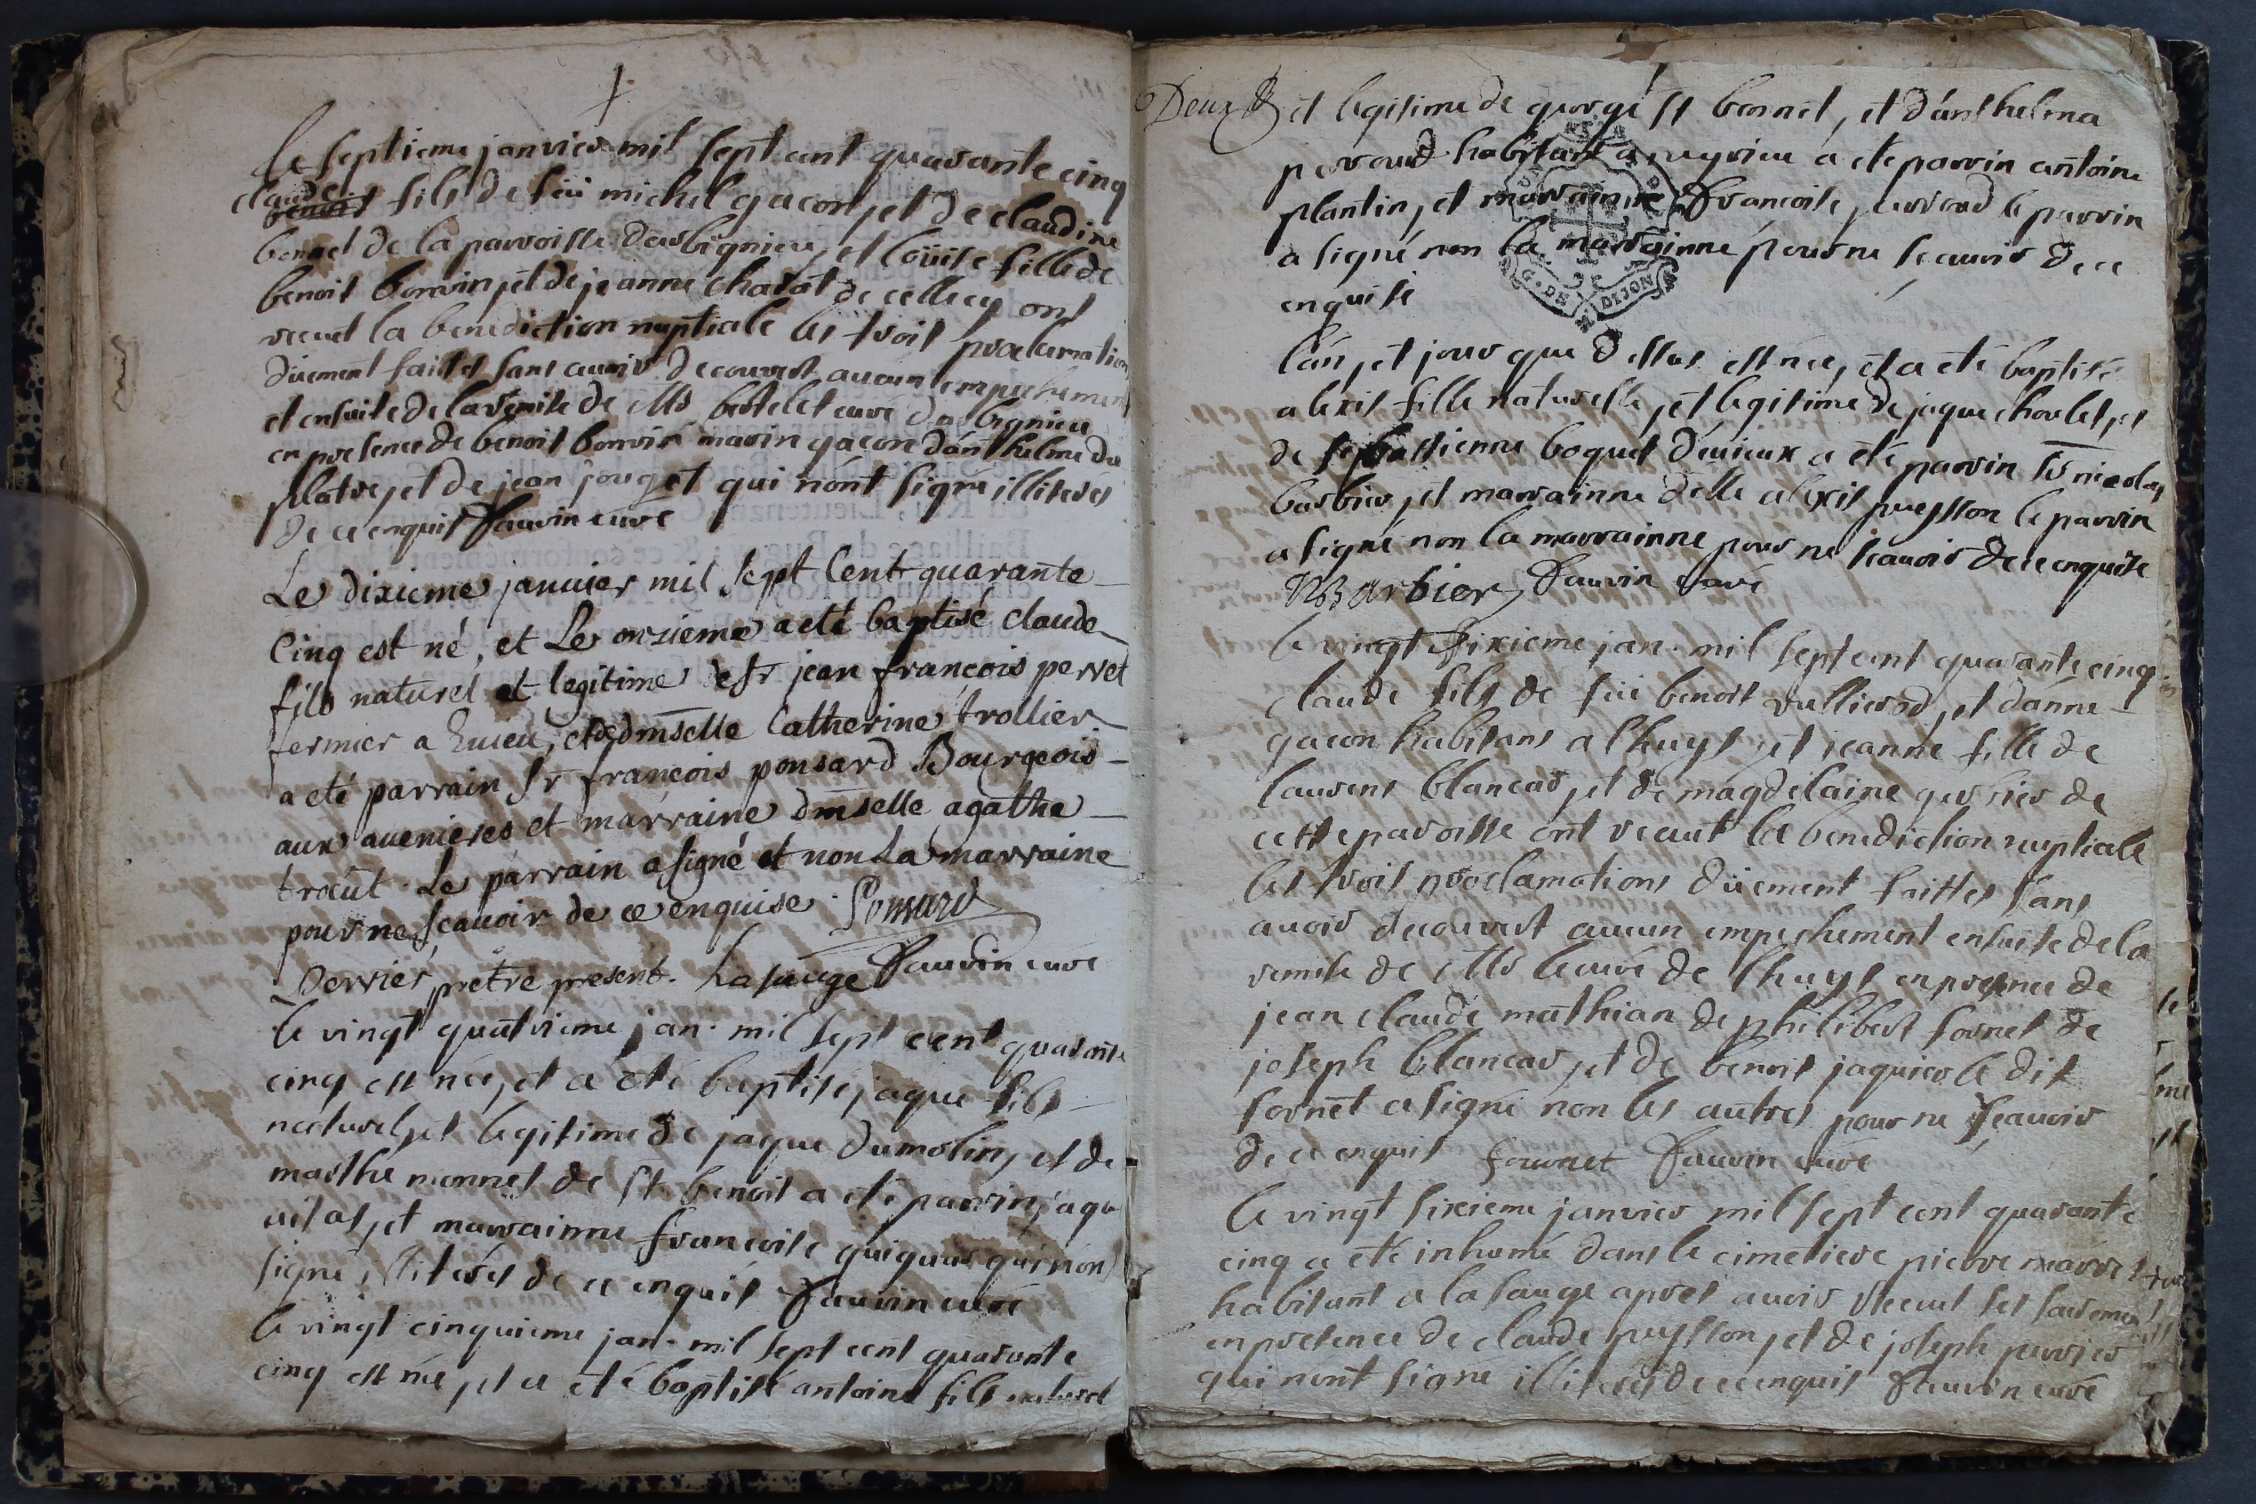 le septieme janvier mil sept cent quarante cinq
claude benoist fils de feu michel gacon, et de claudine
bonnet de la parroisse darbignieu, et loüise fille de
benoit bonvin, et de jeanne chatot de cellecy ont
receut la benediction nuptiale les trois proclamations
düement faites sans avoir decouvert aucun empechement
et ensuite de la remise de Mr bertelet curé darbignieu
en presence de benoit bonvin marin gacon danthelme du
platre, et de jean pouget qui n'ont signé illiteres
de ce enquis Fauvin curé
Le dixieme janvier mil sept Cent quarante
Cinq est né, et Le onzieme a eté baptisé claude
fils naturel et legitime de sr jean françois perret
fermier a Euieu, et de dmselle Catherine trollier
a eté parrain sr françois ponsard Bourgeois
aux avenieres et marraine dmselle agathe
trocut. Le parrain a signé et non La marraine
pour ne sçcavoir de ce enquise. Ponsard
Derrier, prêtre present. Lasauge Fauvin curé
le vingt quatrieme jan. mil sept cent quarante
cinq est née, et a eté baptisé jaque fils
naturel, et legitime de jaque dumolin, et de
marthe monnet de st benoit a eté parrin jaque
vitat, et marrainne françoise guiguar qui n'ont
signé, illiterés de ce enquis Fauvin curé
le vingt cinquieme jan. mil sept cent quarante
cinq est née, et a eté baptisé antoine fils naturel
Deux
et legitime de george st bonnet, et d'anthelma
perroud habitant a peyrieu a eté parrin antoine
plantin, et marrainne françoise perroud le parrin
a signé non la marrainne pour ne sçcavoir de ce
enquise
l'an, et jour que dessus est née, et a eté baptisé
alexis fille naturelle, et legitime de jaque chorlet, et
de sebastienne boquet d'euieux a eté parrin sr nicolas
barbier, et marrainne delle alexis puysson le parrin
a signé non la marrainne pour ne scavoir de ce enquise
NBarbier Fauvin curé
le vingt sixieme jan. mil sept cent quarante cinq
claude fils de feu benoit vullierod, et d'anne
gacon habitans a lhuys, et jeanne fille de
laurent blancar, et de magdelaine gerrier de
cette paroisse ont receut la benediction nuptiale
les trois proclamations düement faittes sans
avoir decouvert aucun empechement ensuite de la
remise de Mr le curé de lhuys en presence de
jean claude mathian de philibert fornet de
joseph blancar, et de benoit jaquier le dit
fornet a signé non les autres pour ne sçeavoir
de ce enquis fournet Fauvin curé
le vingt sixieme janvier mil sept cent quarante
cinq a eté inhumé dans le cimetiere pierre marret
habitant a la sauge apres avoir receut ses sacremens
en presence de claude puysson, et de joseph perrier
qui n'ont signé illiterés de ce enquis Fauvin curé
G. DE DIJON